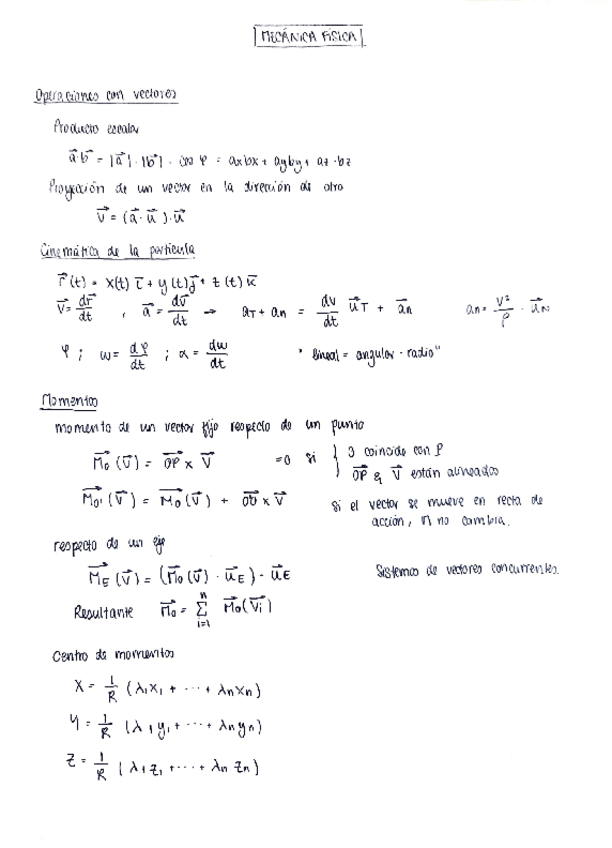 MECÁNICA FÍSICA
Operaciones con vectores
Producto escalar
a⃗·b⃗ = |a⃗|·|b⃗|·cos φ = axbx + ayby + az·bz
Proyección de un vector en la dirección de otro
v⃗ = (a⃗·u⃗)·u⃗
Cinemática de la partícula
r⃗(t) = x(t) i⃗ + y(t) j⃗ + z(t) k⃗
v⃗ = dr⃗/dt , a⃗ = dv⃗/dt → aT + an = dv/dt u⃗T + a⃗n an = v²/ρ · u⃗N
φ ; ω = dφ/dt ; α = dω/dt " lineal = angular · radio"
Momentos
momento de un vector fijo respecto de un punto
M⃗o (v⃗) = OP⃗ x v⃗ =0 si { O coincide con P
OP⃗ & v⃗ están alineados
M⃗o' (v⃗) = M⃗o (v⃗) + O'O⃗ x v⃗ si el vector se mueve en recta de
acción, M no cambia.
respecto de un eje
M⃗E (v⃗) = (M⃗o (v⃗) · u⃗E) · u⃗E Sistemas de vectores concurrentes.
Resultante M⃗o = Σ i=1 n M⃗o(v⃗i)
Centro de momentos
X = 1/R (λ1x1 + ··· + λnxn)
Y = 1/R (λ1y1 + ··· + λnyn)
Z = 1/R (λ1z1 + ··· + λnzn)